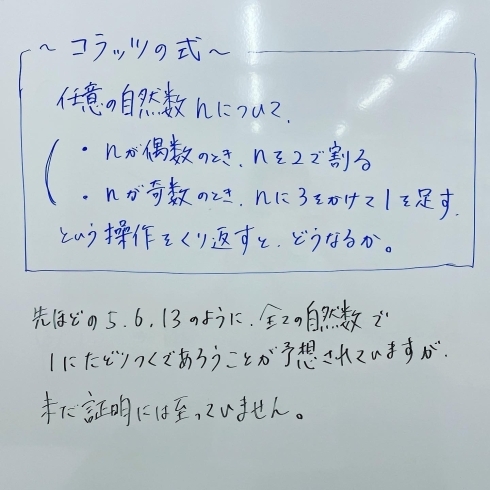 ～コラッツの式～
任意の自然数nについて、
・nが偶数のとき、nを2で割る
・nが奇数のとき、nに3をかけて1を足す.
という操作をくり返すと、どうなるか。
先ほどの5.6.13のように、全ての自然数で
1にたどりつくであろうことが予想されていますが、
まだ証明には至っていません。